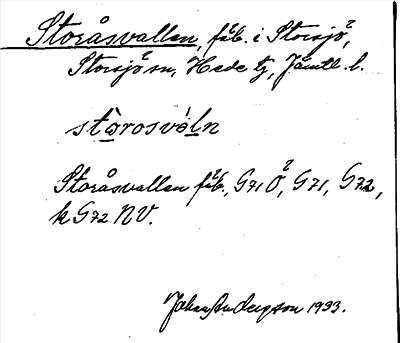 Storåsvallen, fäb. i Storsjö,
Storsjö sn, Hede tg, Jämtl. l.
stòrosvòln
Storåsvallen fäb., G71 Ö, G71, G72,
k G72 NV.
Johan Anderson 1933.